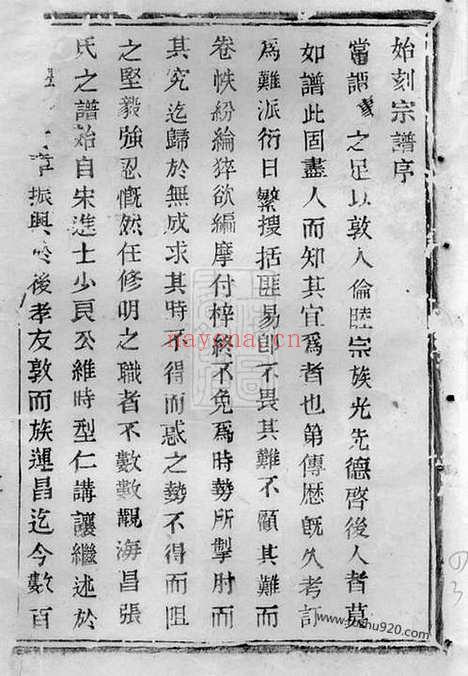 始刻宗譜序
嘗謂之足以敦人倫睦宗族光先德啓後人者莫
如譜此固盡人而知其宜爲者也第傳歷旣久考訂
爲難派衍日繁搜括匪易卽不畏其難不顧其難而
卷帙紛綸猝欲編摩付梓終不免爲時勢所掣肘而
其究迄歸於無成求其時不得而惑之勢不得而阻
之堅毅強忍慨然任修明之職者不數數覯海昌張
氏之譜始自宋進士少良公維時型仁講讓繼述於
章振興於後孝友敦而族運昌迄今數百
nayona.cn
www.yozhu920.com